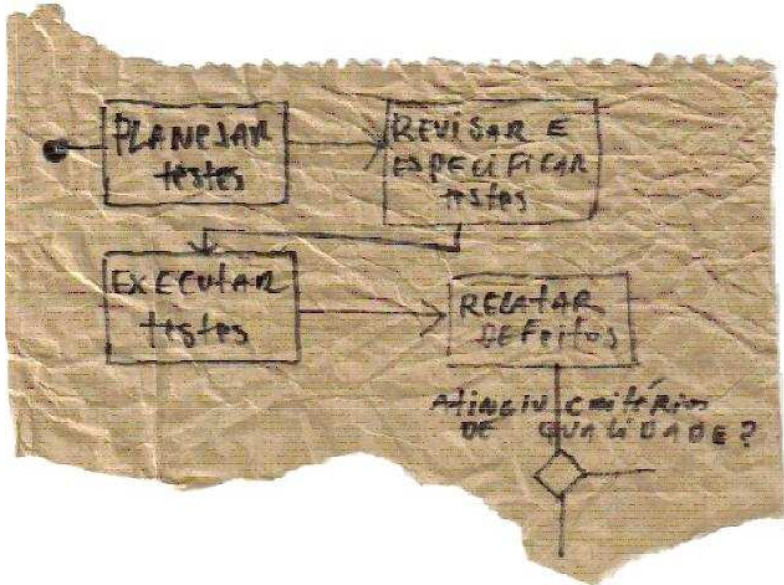 PLANEJAR
testes
REVISAR E
ESPECIFICAR
testes
EXECUTAR
testes
RELATAR
DEFeitos
Atingiu critérios
DE QUALIDADE?